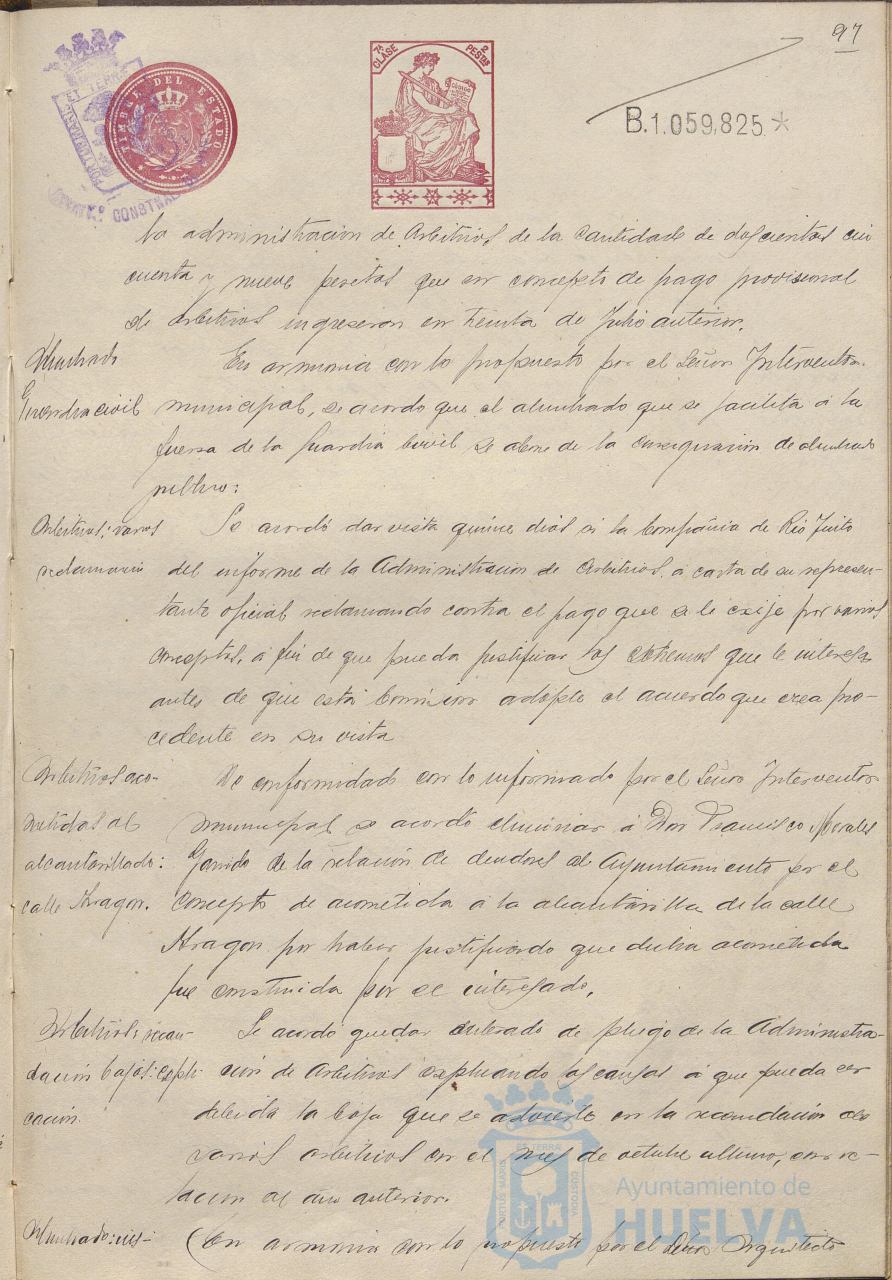 97
7ª CLASE
2 PESTAS
TIMBRE DEL ESTADO
B.1.059,825 *
la administracion de Arbitrios de la cantidad de doscientas cin
cuenta y nueve pesetas que en concepto de pago provisional
de arbitrios ingresaron en treinta de Julio anterior.
Alumbrado
Guardia civil
En armonia con lo propuesto por el Señor Interventor
municipal, se acordo que el alumbrado que se facilita á la
fuersa de la Guardia Civil se abone de la consignación de alumbrado
publico:
Arbitrios; varios
reclamación
Se acordó dar vista quince dias á la Compañia de Rio Tinto
del informe de la Administracion de Arbitrios á carta de su represen-
tante oficial reclamando contra el pago que se le exije por varios
conceptos, á fin de que pueda justificar los estremos que le interesa
antes de que esta Comision adopte el acuerdo que crea pro-
cedente en su vista
Arbitrios aco-
metidas al
alcantarillado:
calle Aragon.
De conformidad con lo informado por el Señor Interventor
municipal se acordó eliminar á Don Francisco Morales
Garrido de la relación de deudores al Ayuntamiento por el
concepto de acometida á la alcantarilla de la calle
Aragon por haber justificado que dicha acometida
fue construida por el interesado.
Arbitrios; recau-
dación bajas: expli-
cación.
Se acordó quedar enterado de pliego de la Administra-
ción de Arbitrios explicando las causas á que pueda ser
debida la baja que se advierte en la recaudación de
varios arbitrios en el mes de octubre ultimo, con re-
lacion al año anterior.
Alumbrado:
En armonia con lo propuesto por el Señor Arquitecto
PORTUS MARIS ET TERRA CUSTODIA
Ayuntamiento de
HUELVA